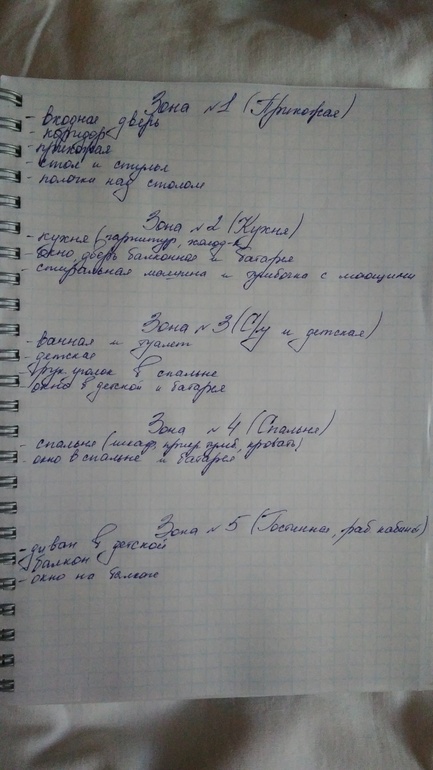 Зона №1 (Прихожая)
- входная дверь
- коридор
- прихожая
- стол и стулья
- полочки над столом
Зона №2 (Кухня)
- кухня (гарнитур, холод-к)
- окно, дверь балконное и батарея
- стиральная машина и тумбочка с моющими
Зона №3 (С/у и детская)
- ванная и туалет
- детская
- рук. уголок в спальне
- окно в детской и батарея
Зона №4 (Спальня)
- спальня (шкаф, тумб, кровать)
- окно в спальне и батарея
Зона №5 (Гостинная, раб. кабинет)
- диван в детской
- балкон
- окно на балконе